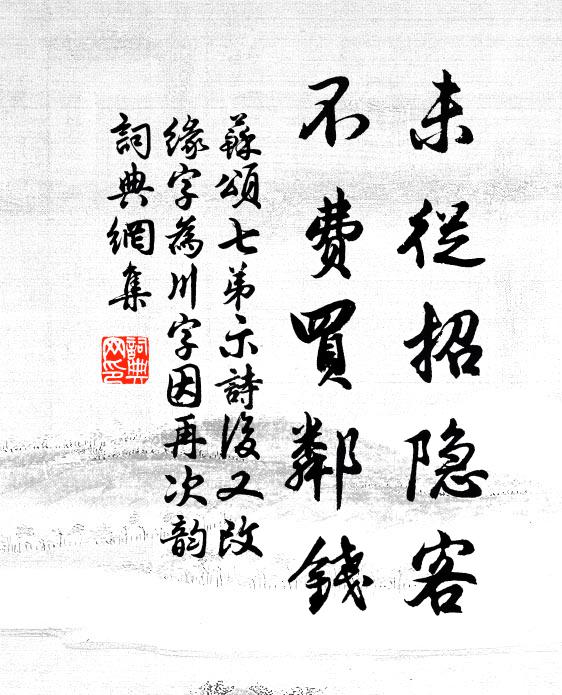 未從招隐客
不費買鄰錢
蘇頌七弟示詩後又改
緣字為川字因再次韵
詞典網集
詞典
网印